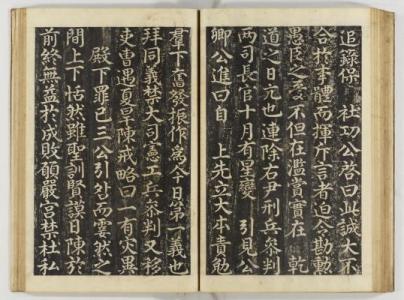 追錄保 社功公啓曰此誠大不
合於事體而揮斥言者迫令勘勳
愚臣之憂不但在濫賞實在 乾
道之日亢也連除右尹刑兵參判
两司長官十月有星變 引見公
卿公進曰自 上先立大本責勉
羣下奮發振作爲今日第一義也
拜同義禁大司憲工兵參判又移
吏曹遇夏旱陳戒略曰一有灾異
殿下罪己三公引咎而要然之
間上下恬然雖聖訓賢謨日陳於
前終無益於成敗願嚴宮禁杜私